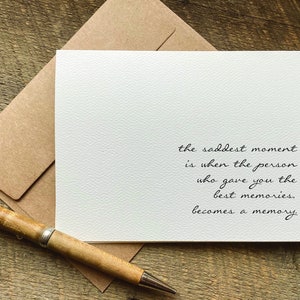 the saddest moment
is when the person
who gave you the
best memories.
becomes a memory